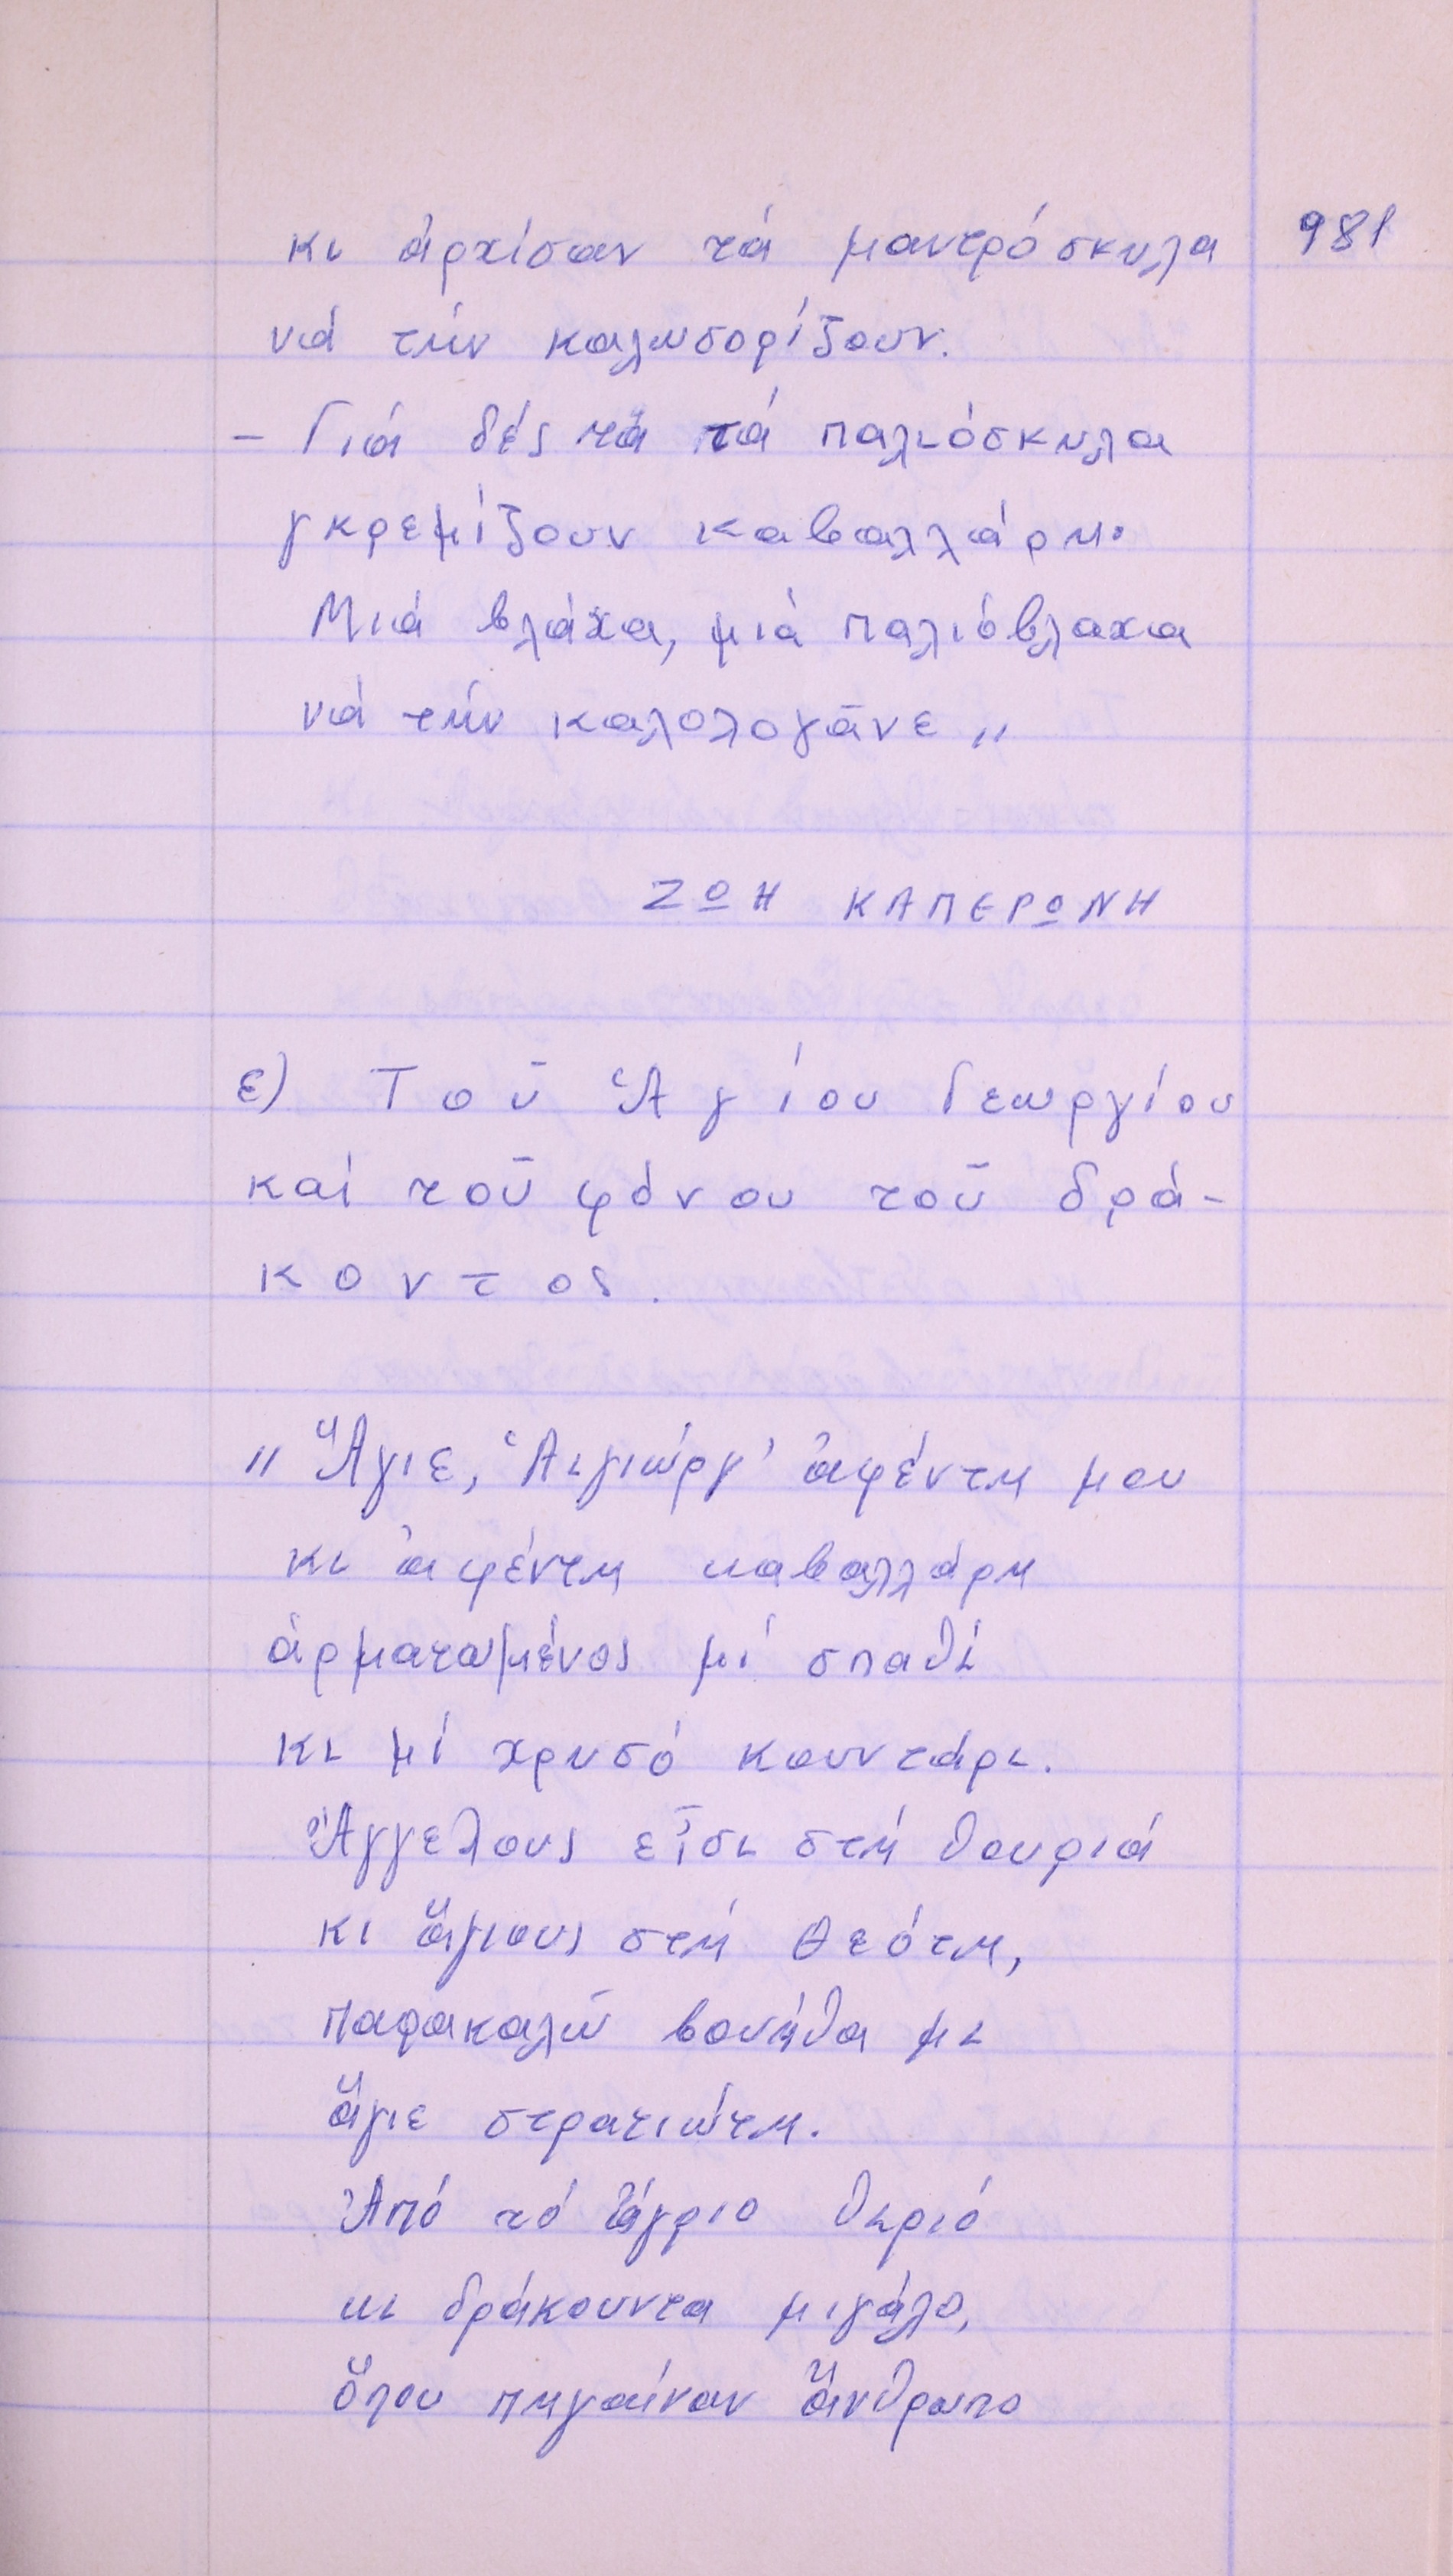 981
κι ἀρχίσαν τά μαντρόσκυλα
νά τήν καλωσορίζουν.
- Γιά δές τά τά παλιόσκυλα
γκρεμίζουν καβαλλάρη·
Μιά βλάχα, μιά παλιόβλαχα
νά τήν καλολογᾶνε „
ΖΩΗ ΚΑΠΕΡΩΝΗ
ε) Τοῦ Ἁγίου Γεωργίου
καί τοῦ φόνου τοῦ δρά-
κοντος.
„ Ἅγιε, Ἁιγιώργ' ἀφέντη μου
κι ἀφέντη καβαλλάρη
ἁρματωμένος μί σπαθί
κι μί χρυσό κουντάρι.
Ἄγγελους εἶσι στή θουριά
κι ἅγιους στή θεότη,
παρακαλῶ βουήθα μι
ἅγιε στρατιώτη.
Ἀπό τό ἄγριο θεριό
κι δράκουντα μιγάλο,
ὅπου πηγαίναν ἄνθρωπο